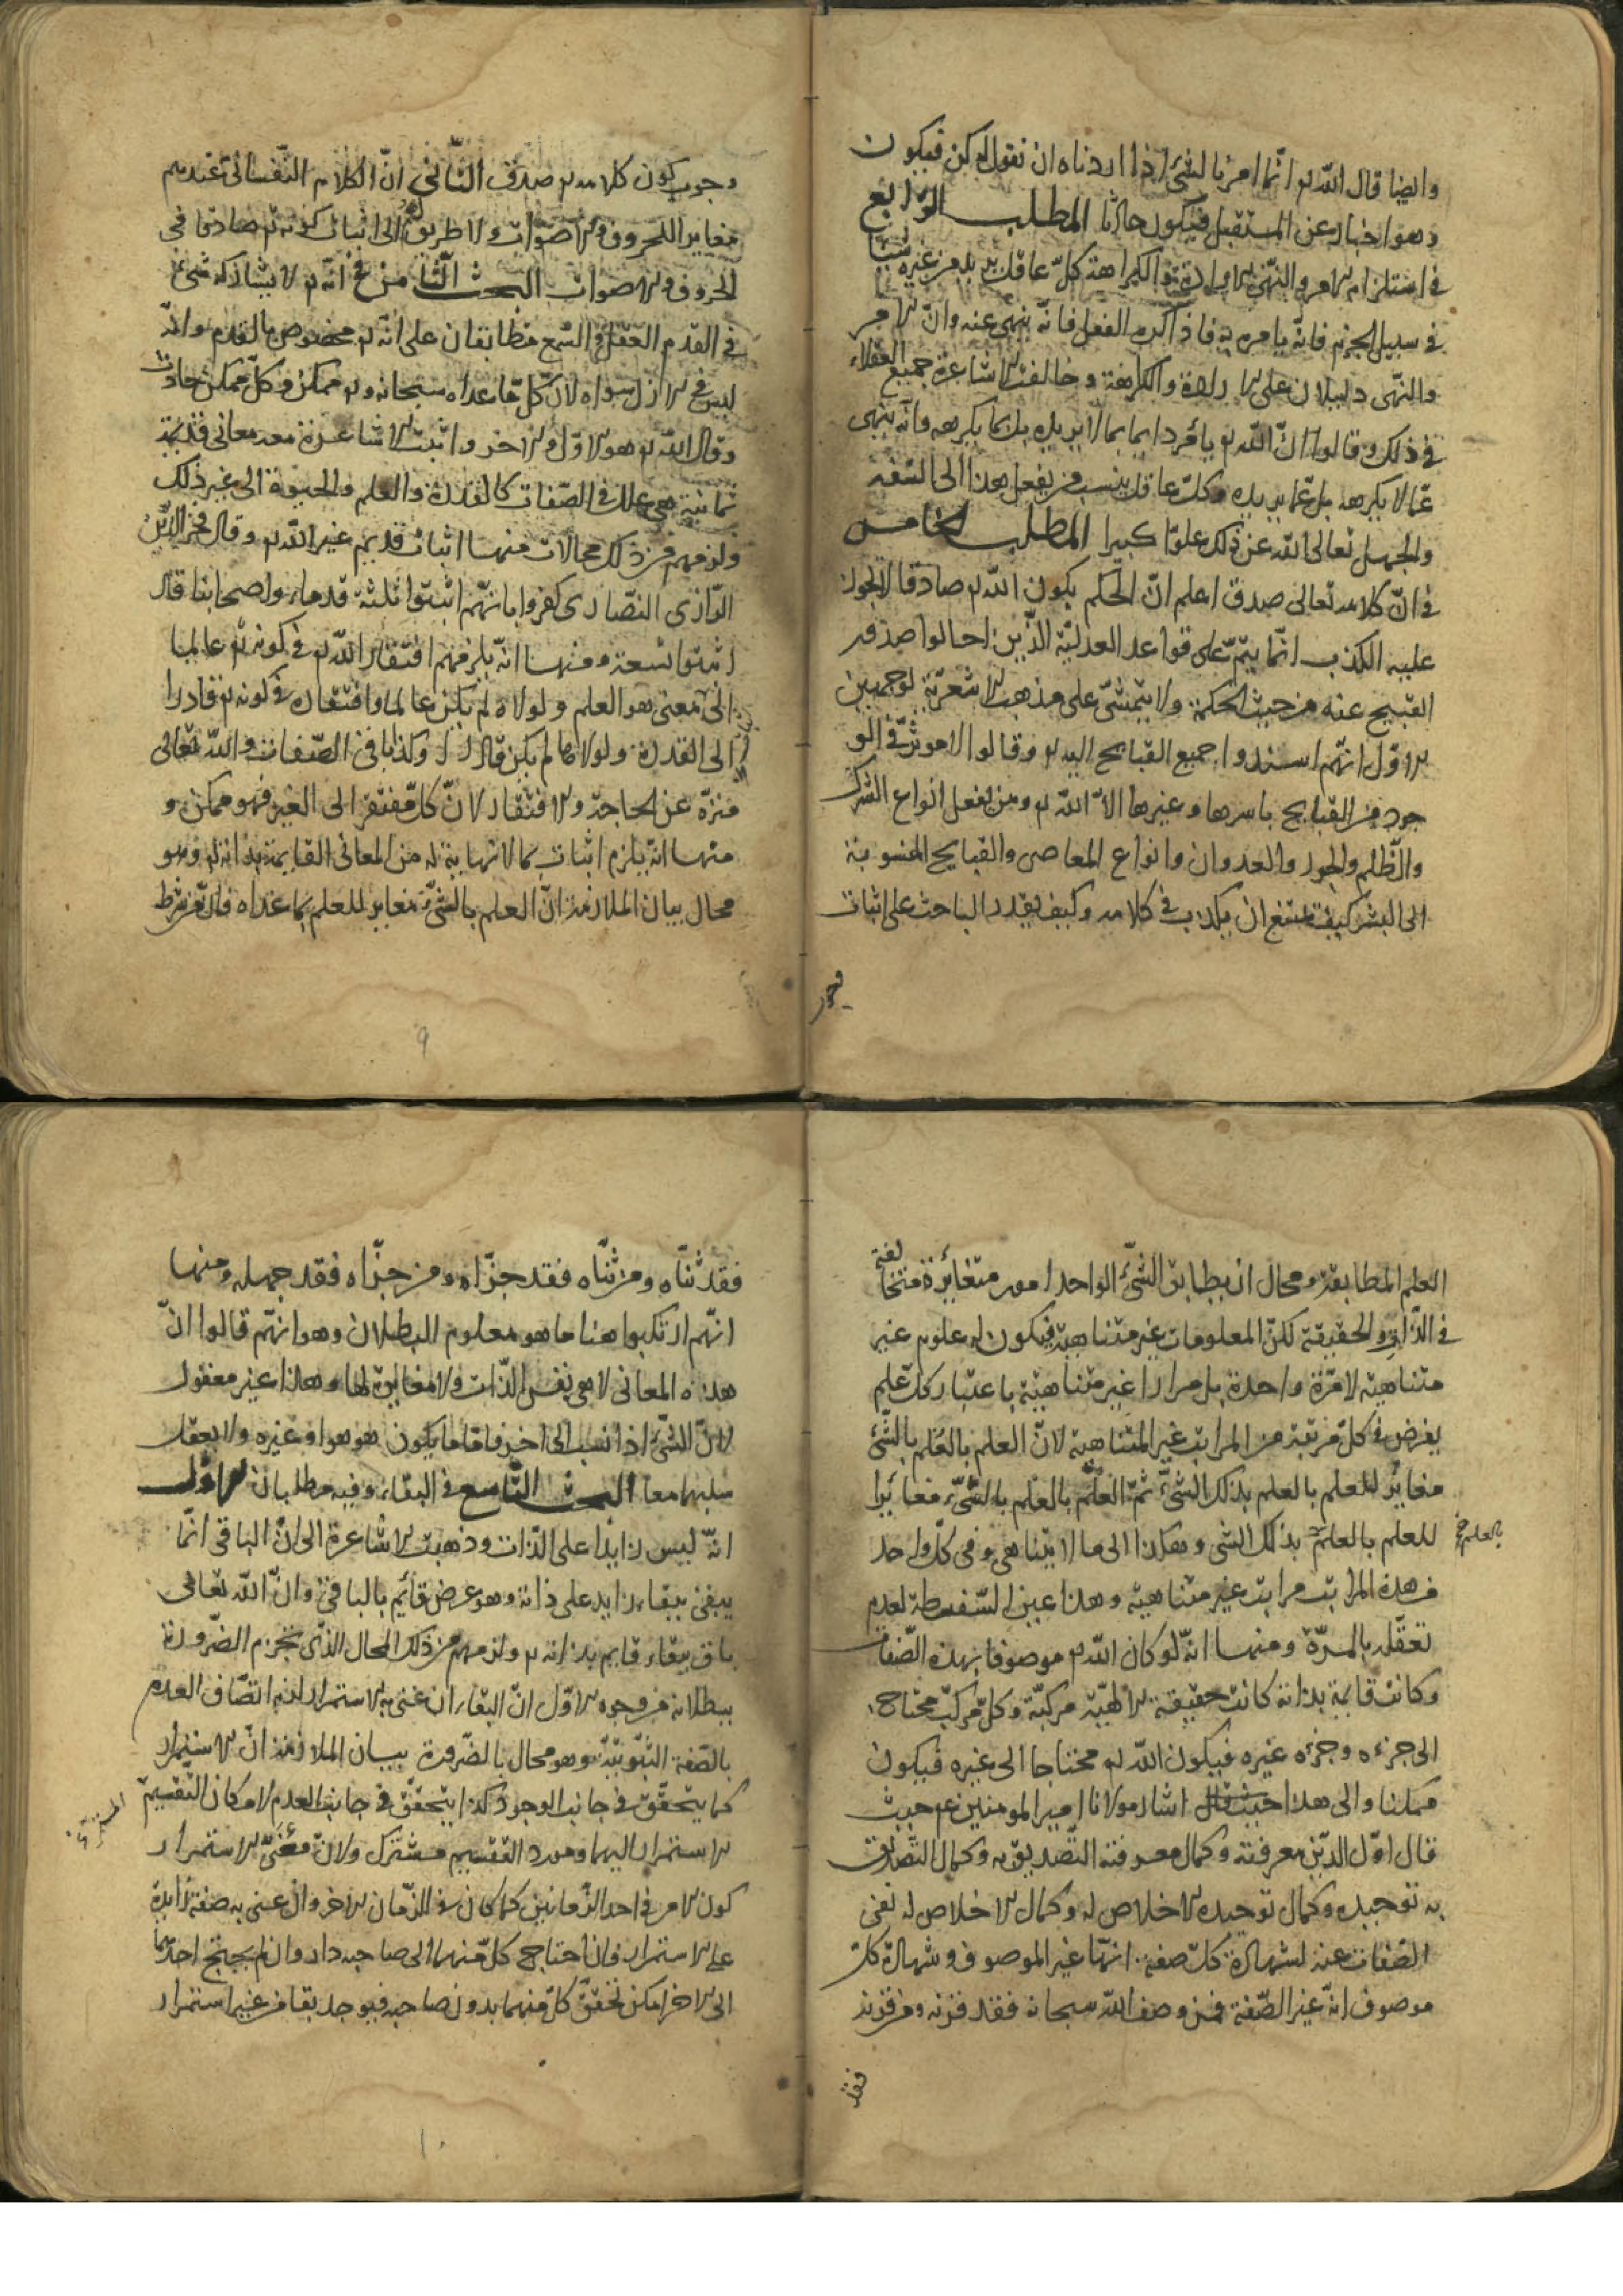 وايضا قال الله تع انما امرنا لشئ اذا اردناه ان نقول له كن فيكون
وهو اخبار عن المستقبل فيكون حادثا المطلب الرابع
في استلزام الامر والنهى الارادة والكراهة كل عاقل يريد من غيره شيئا
في سبيل الجزم فانه يامره به فاذا كره الفعل فانه ينهى عنه وان الامر
والنهى دليلان على الارادة والكراهة وخالفت الاشاعرة جميع العقلاء
في ذلك وقالوا ان الله تع يأمر دايما بما لا يريده بل بما يكرهه وانه ينهى
عما لا يكرهه بل عما يريده وكل عاقل ينسب من يفعل هذا الى السفه
والجهل تعالى الله عن ذلك علوا كبيرا المطلب الخامس
في ان كلامه تعالى صدق اعلم ان الحكم بكون الله تع صادقا لا يجوز
عليه الكذب انما يتم على قواعد العدلية الذين احالوا صدور
القبيح عنه من حيث الحكمة ولا يتمشى على مذهب الاشعرية لوجهين
الاول انهم اسندوا جميع القبايح اليه تع وقالوا لا موثر في الو
جود من القبايح باسرها وغيرها الا الله تع ومن يفعل انواع الشرك
والظلم والجور والعدوان وانواع المعاصى والقبايح المنسوبة
الى البشر كيف يمتنع ان يكذب في كلامه وكيف يقدر الباحث على اثبات
وجوب كون كلامه تع صدق الثاني ان الكلام النفسانى عندهم
مغاير للحروف والاصوات ولا طريق الى اثبات كونه تع صادقا في
الحروف والاصوات البحث الثامن في انه تع لا يشاركه شئ
في القدم العقل والسمع متطابقان على انه تع مخصوص بالقدم وانه
ليس في الازل سواه لان كل ما عداه سبحانه وتع ممكن وكل ممكن حادث
وقال الله تع هو الاول والاخر واثبت الاشاعرة معه معانى قديمة
ثمانية هي علل في الصفات كالقدرة والعلم والحيوة الى غير ذلك
ولزمهم من ذلك محالات منها اثبات قديم غير الله تع وقال فخر الدين
الرازى النصارى كفروا بانهم اثبتوا ثلثة قدماء واصحابنا قال
اثبتوا تسعة ومنها انه يلزمهم افتقار الله تع في كونه تع عالما
الى معنى هو العلم ولولاه لم يكن عالما وافتقاره في كونه تع قادرا
الى القدرة ولولاها لم يكن قادرا وكذا باقى الصفات والله تعالى
منزه عن الحاجة والافتقار لان كل مفتقر الى الغير فهو ممكن و
منها انه يلزم اثبات ما لا نهاية له من المعانى القايمة بذاته تع وهو
محال بيان الملازمة ان العلم بالشئ مغاير للعلم بما عداه فان من شرط
٩
العلم المطابقة ومحال ان يطابق الشئ الواحد امور متغايرة متخالفة
في الذات والحقيقة لكن المعلومات غير متناهية فيكون له علوم غير
متناهية لا مرة واحدة بل مرارا غير متناهية باعتبار كل علم
يفرض في كل مرتبة من المراتب غير المتناهية لان العلم بالعلم بالشئ
مغاير للعلم بالعلم بذلك الشئ ثم العلم بالعلم بالشئ مغايرا
للعلم بالعلم بذلك الشى وهكذا الى ما لا يتناهى وفى كل واحد
بالعلم
من هذه المراتب مراتب غير متناهية وهذا عين السفسطة لعدم
تعقله بالمرة ومنها انه لو كان الله تع موصوفا بهذه الصفات
وكانت قايمة بذاته كانت حقيقة الالهية مركبة وكل مركب محتاج
الى جزءه وجزءه غيره فيكون الله تع محتاجا الى غيره فيكون
ممكنا والى هذا اشار مولانا امير المومنين ع حيث
قال اول الدين معرفته وكمال معرفته التصديق به وكمال التصديق
به توحيده وكمال توحيده الاخلاص له وكمال الاخلاص له نفى
الصفات عنه لشهادة كل صفة انها غير الموصوف وشهادة كل
موصوف انه غير الصفة فمن وصف الله سبحانه فقد قرنه ومن قرنه
فقد
فقد ثناه ومن ثناه فقد جزاه ومن جزاه فقد جهله ومنها
انهم ارتكبوا هنا ما هو معلوم البطلان وهو انهم قالوا ان
هذه المعانى لا هى نفس الذات ولا مغايرة لها وهذا غير معقول
لان الشئ اذا نسب الى اخر فاما ما يكون هو هو او غيره ولا يعقل
سلبهما معا البحث التاسع في البقاء وفيه مطلبان الاول
انه ليس زايدا على الذات وذهبت الاشاعرة الى ان الباقى انما
يبقى ببقاء زايد على ذاته وهو عرض قائم بالباقى وان الله تعالى
باق ببقاء قايم بذاته تع ولزمهم من ذلك المحال الذى تجزم الضرورة
ببطلانه من وجوه الاول ان البقاء ان عنى به الاستمرار لزم اتصاف العدم
بالصفة الثبوتية وهو محال بالضرورة بيان الملازمة ان الاستمرار
كما يتحقق في جانب الوجود كذا يتحقق في جانب العدم لامكان التقسيم
الاستمرار اليهما ومورد التقسيم مشترك ولان معنى الاستمرار
كون الامر في احد الزمانين كما كان في الزمان الاخر وان عنى به صفة زايدة
على الاستمرار فان احتاج كل منهما الى صاحبه دار وان لم يحتج احدهما
الى الاخر امكن تحقق كل منهما بدون صاحبه فيوجد بقا من غير استمرار
١٠